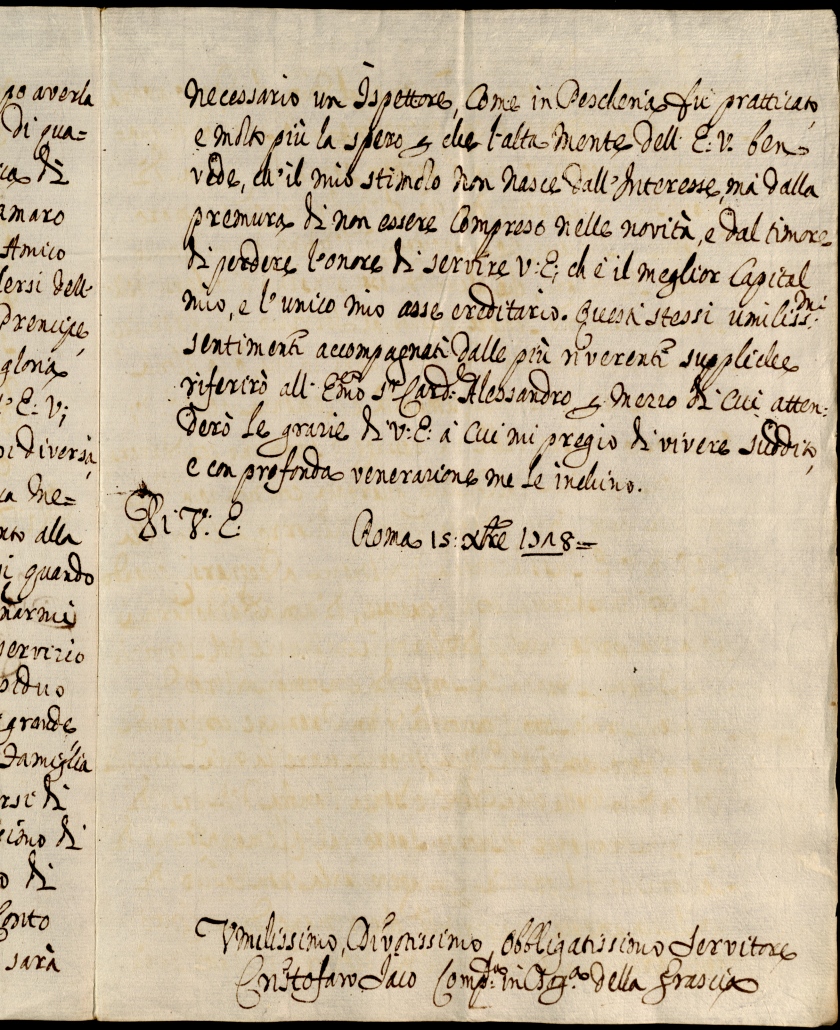 po averla
Di qua=
di
amaro
Amico
lersi dell'
Prencipe
gloria
E: V;
diversa
ca me=
nto alla
quando
servizio
grande
Famiglia
rsi di
simo di
o di
Conto
sarà
necessario un Ispettore, Come in Pescheria fu pratticato,
e molto più la spero, che l'alta Mente dell' E: V. ben
vede, ch'il mio stimolo non nasce dall'Interesse, ma dalla
premura di non essere compreso nelle novità, e dal timore
di perdere l'onore di servire V: E; ch'è il meglior Capital
mio, e l'unico mio asse ereditario. Questi stessi umiliss:mi
sentimenti accompagnati dalle più riverenti suppliche
riferirò all' Emo Sr Card: Alessandro p mezzo di cui atten=
derò le grazie di V: E: à cui mi pregio di vivere suddito,
e con profonda venerazione me le inchino.
Di V: E:
Roma 15: Xbre 1718=
Umilissimo, Divotissimo, Obbligatissimo Servitore
Cristofaro Jaco della Grascia